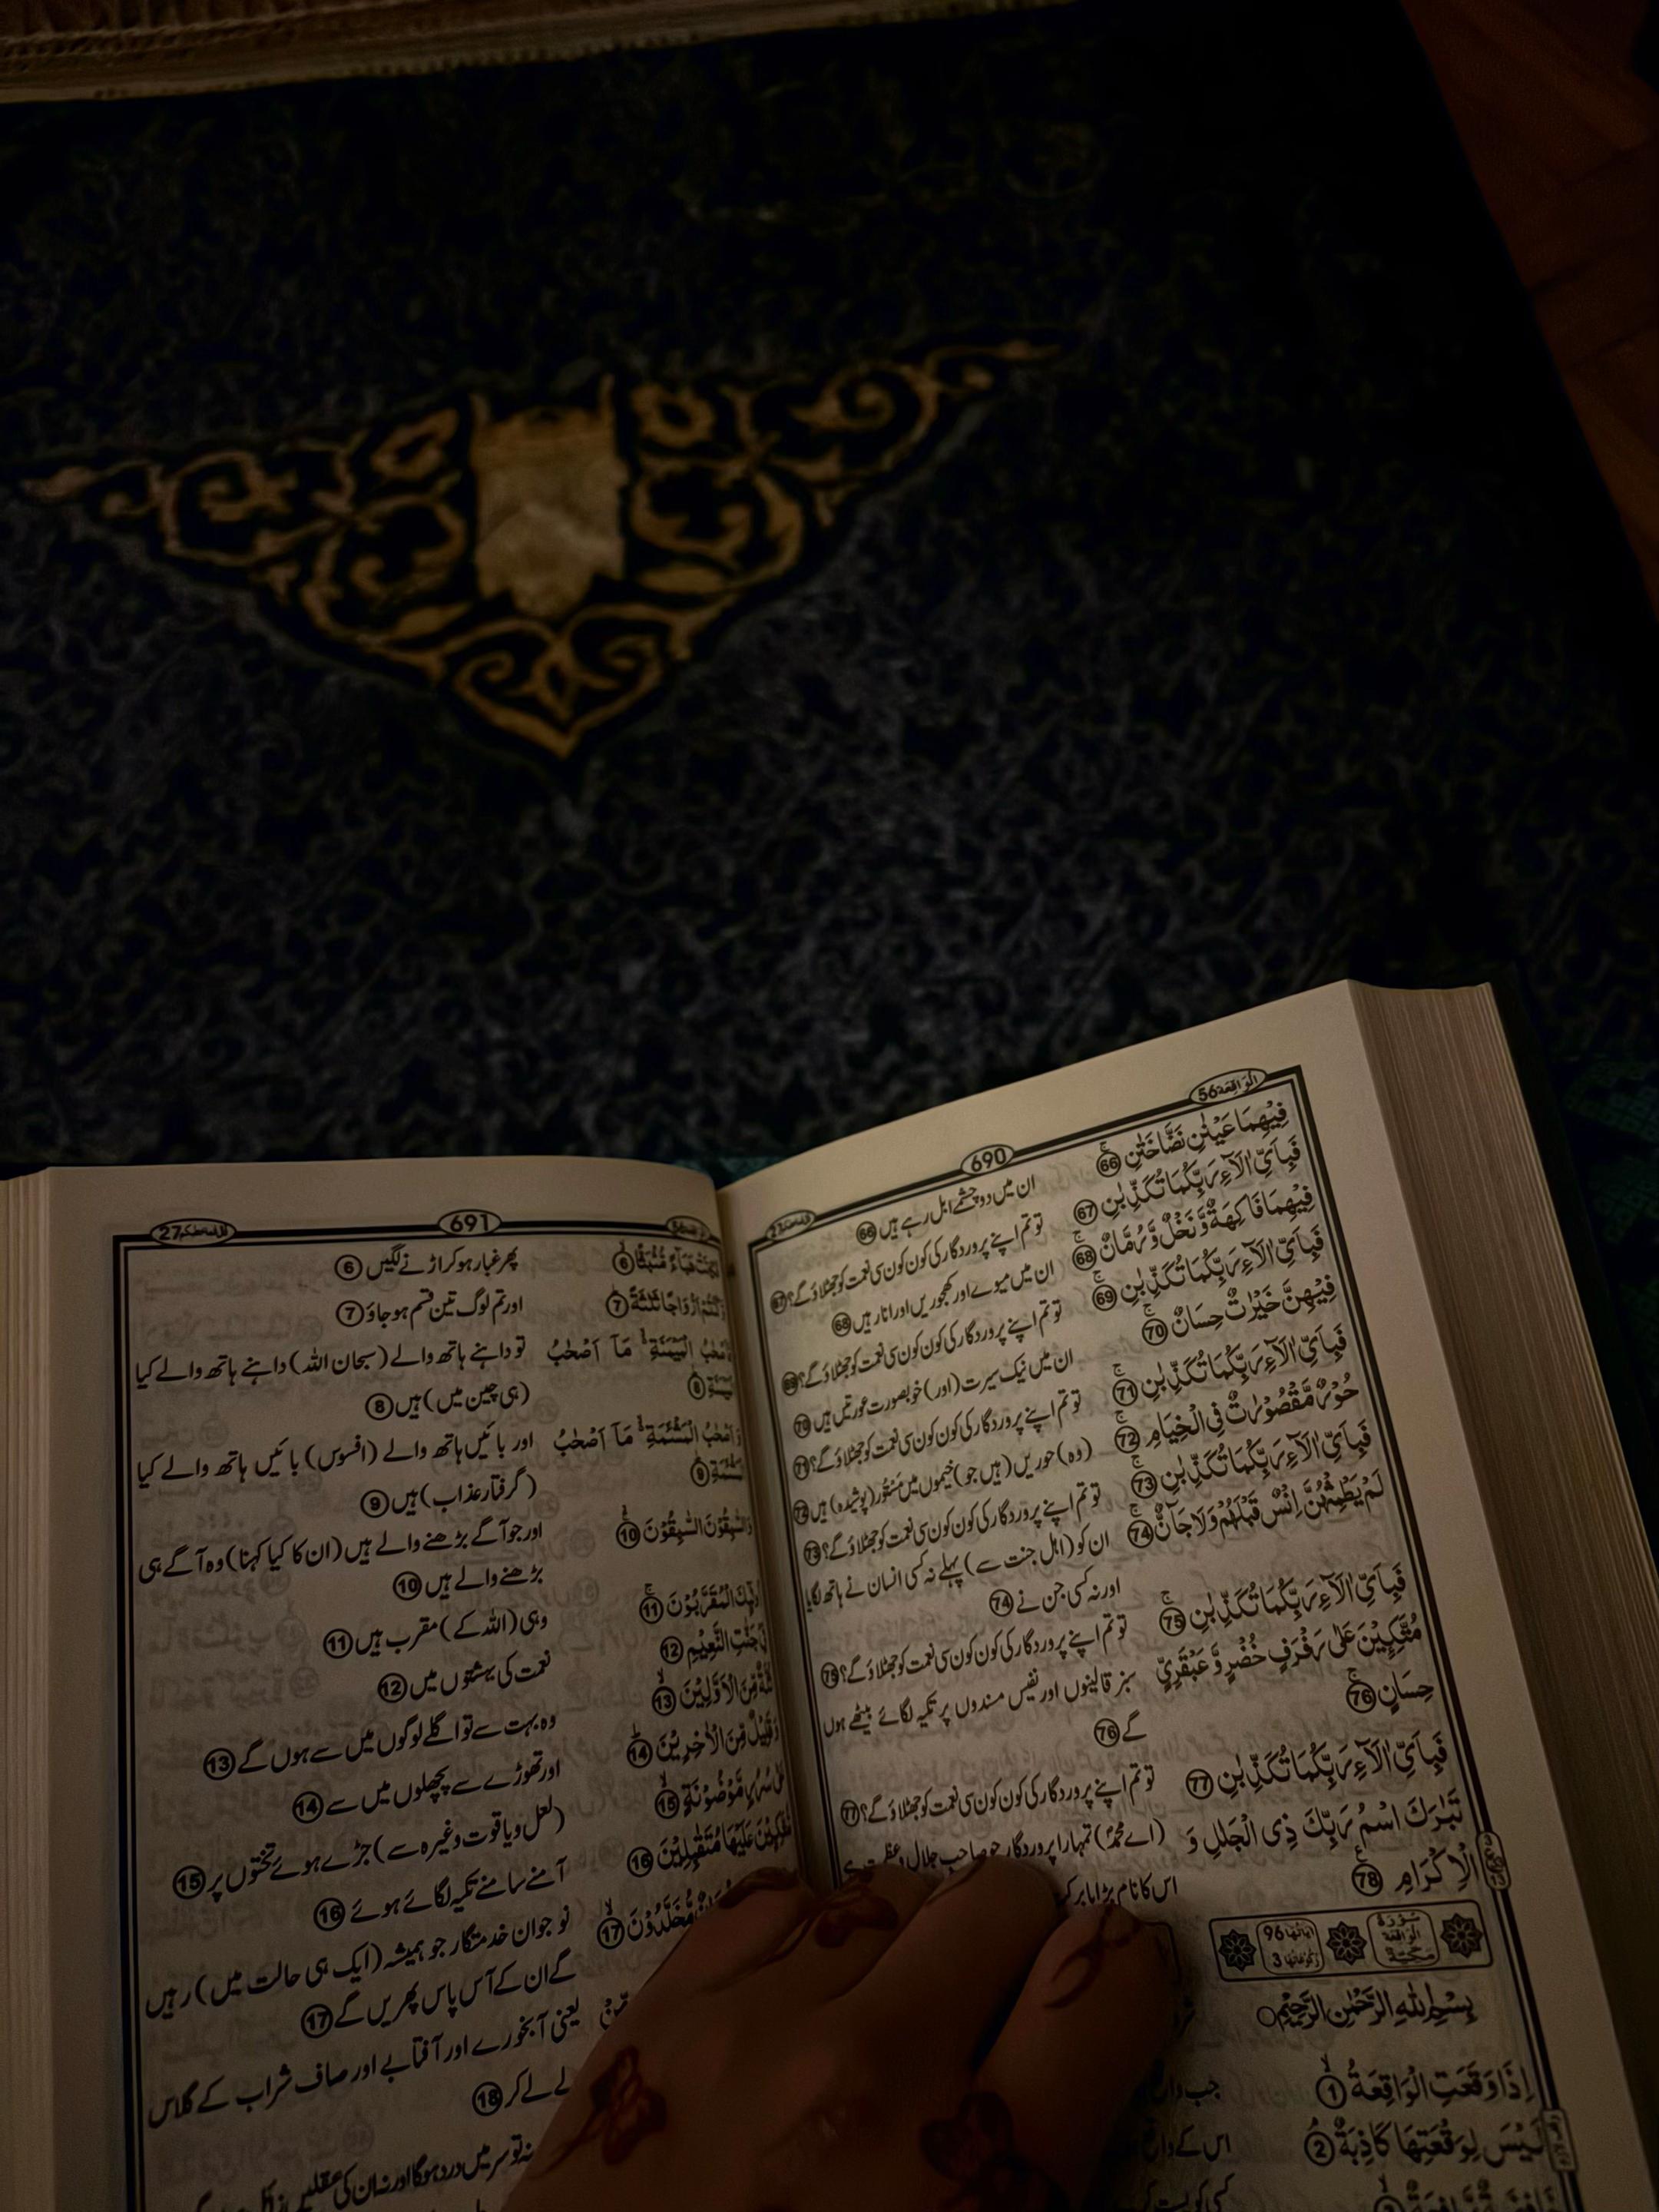 الواقعة 56
690
فِيْهِمَا عَيْنٰنِ نَضَّاخَتٰنِ 66
ان میں دو چشمے ابل رہے ہیں 66
فَبِاَيِّ اٰلَآءِ رَبِّكُمَا تُكَذِّبٰنِ 67
تو تم اپنے پروردگار کی کون کون سی نعمت کو جھٹلاؤ گے؟ 67
فِيْهِمَا فَاكِهَةٌ وَّنَخْلٌ وَّرُمَّانٌ 68
ان میں میوے اور کھجوریں اور انار ہیں 68
فَبِاَيِّ اٰلَآءِ رَبِّكُمَا تُكَذِّبٰنِ 69
تو تم اپنے پروردگار کی کون کون سی نعمت کو جھٹلاؤ گے؟ 69
فِيْهِنَّ خَيْرٰتٌ حِسَانٌ 70
ان میں نیک سیرت (اور) خوبصورت عورتیں ہیں 70
فَبِاَيِّ اٰلَآءِ رَبِّكُمَا تُكَذِّبٰنِ 71
تو تم اپنے پروردگار کی کون کون سی نعمت کو جھٹلاؤ گے؟ 71
حُوْرٌ مَّقْصُوْرٰتٌ فِي الْخِيَامِ 72
(وہ) حوریں (ہیں جو) خیموں میں مستور (پوشیدہ) ہیں 72
فَبِاَيِّ اٰلَآءِ رَبِّكُمَا تُكَذِّبٰنِ 73
تو تم اپنے پروردگار کی کون کون سی نعمت کو جھٹلاؤ گے؟ 73
لَمْ يَطْمِثْهُنَّ اِنْسٌ قَبْلَهُمْ وَلَا جَآنٌّ 74
ان کو (اہل جنت سے) پہلے نہ کسی انسان نے ہاتھ لگایا
اور نہ کسی جن نے 74
فَبِاَيِّ اٰلَآءِ رَبِّكُمَا تُكَذِّبٰنِ 75
تو تم اپنے پروردگار کی کون کون سی نعمت کو جھٹلاؤ گے؟ 75
مُتَّكِـِٕيْنَ عَلٰى رَفْرَفٍ خُضْرٍ وَّعَبْقَرِيٍّ
حِسَانٍ 76
سبز قالینوں اور نفیس مسندوں پر تکیہ لگائے بیٹھے ہوں
گے 76
فَبِاَيِّ اٰلَآءِ رَبِّكُمَا تُكَذِّبٰنِ 77
تو تم اپنے پروردگار کی کون کون سی نعمت کو جھٹلاؤ گے؟ 77
تَبٰرَكَ اسْمُ رَبِّكَ ذِى الْجَلٰلِ وَ
الْاِكْرَامِ 78
(اے محمدؐ) تمہارا پروردگار جو صاحب جلال و عظمت ہے
اس کا نام بڑا بابرکت
اٰيَاتُهَا 96
رُكُوْعَاتُهَا 3
سُوْرَةُ الْوَاقِعَةِ مَكِّيَّةٌ
بِسْمِ اللّٰهِ الرَّحْمٰنِ الرَّحِيْمِ
اِذَا وَقَعَتِ الْوَاقِعَةُ 1
جب
لَيْسَ لِوَقْعَتِهَا كَاذِبَةٌ 2
اس کے
691
27
پھر غبار ہو کر اڑنے لگیں 6
هَبَآءً مُّنْۢبَثًّا 6
اور تم لوگ تین قسم ہو جاؤ 7
اَزْوَاجًا ثَلٰثَةً 7
الْمَيْمَنَةِ مَآ اَصْحٰبُ
8
تو داہنے ہاتھ والے (سبحان اللہ) داہنے ہاتھ والے کیا
(ہی چین میں) ہیں 8
الْمَشْـَٔمَةِ مَآ اَصْحٰبُ
9
اور بائیں ہاتھ والے (افسوس) بائیں ہاتھ والے کیا
(گرفتار عذاب) ہیں 9
السّٰبِقُوْنَ السّٰبِقُوْنَ 10
اور جو آگے بڑھنے والے ہیں (ان کا کیا کہنا) وہ آگے ہی
بڑھنے والے ہیں 10
الْمُقَرَّبُوْنَ 11
وہی (اللہ کے) مقرب ہیں 11
جَنّٰتِ النَّعِيْمِ 12
نعمت کی بہشتوں میں 12
ثُلَّةٌ مِّنَ الْاَوَّلِيْنَ 13
وہ بہت سے تو اگلے لوگوں میں سے ہوں گے 13
وَقَلِيْلٌ مِّنَ الْاٰخِرِيْنَ 14
اور تھوڑے سے پچھلوں میں سے 14
سُرُرٍ مَّوْضُوْنَةٍ 15
(لعل و یاقوت وغیرہ سے) جڑے ہوئے تختوں پر 15
عَلَيْهَا مُتَقٰبِلِيْنَ 16
آمنے سامنے تکیہ لگائے ہوئے 16
مُّخَلَّدُوْنَ 17
نوجوان خدمتگار جو ہمیشہ (ایک ہی حالت میں) رہیں
گے ان کے آس پاس پھریں گے 17
یعنی آبخورے اور آفتابے اور صاف شراب کے گلاس
لے لے کر 18
نہ تو سر میں درد ہوگا اور نہ ان کی عقلیں